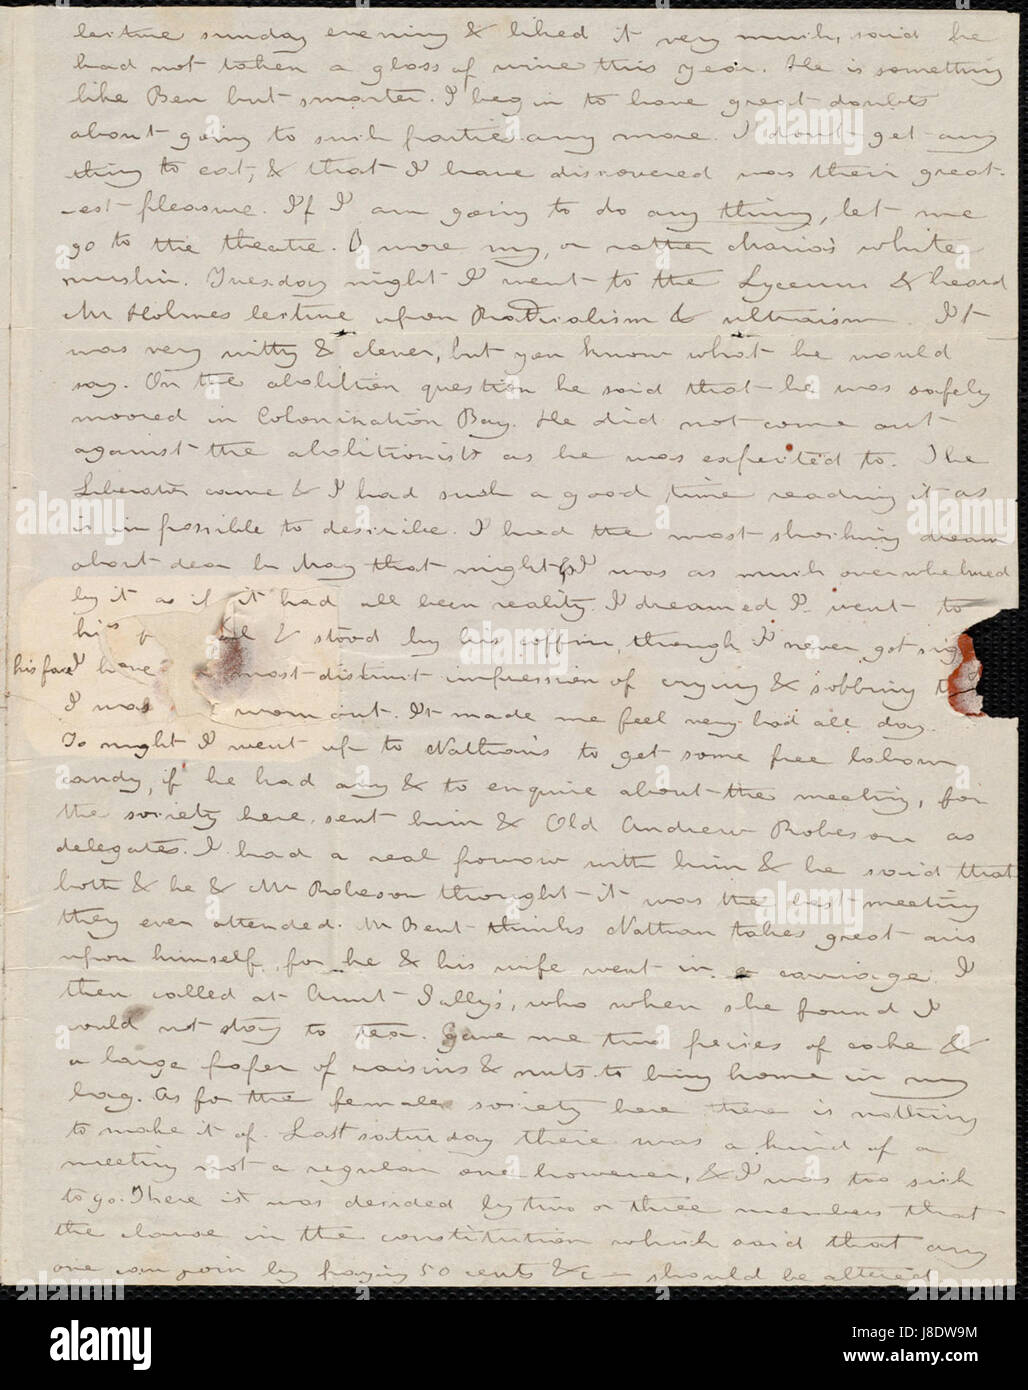 lecture sunday evening & liked it very much, said he
had not taken a glass of wine this year. He is something
like Ben but smarter. I begin to have great doubts
about going to such parties any more. I don't get any
thing to eat, & that I have discovered was their great-
-est pleasure. If I am going to do any thing, let me
go to the theatre. I wore my, or rather Maria's white
muslin. Tuesday night I went to the Lyceum & heard
Mr Holmes lecture upon Radicalism & ultraism. It
was very witty & clever, but you know what he would
say. On the abolition question he said that he was safely
moored in Colonization Bay. He did not come out
against the abolitionists as he was expected to. The
Liberator came & I had such a good time reading it as
is impossible to describe. I had the most shocking dream
about dear Mr May that night & I was as much overwhelmed
by it as if it had all been reality. I dreamed I went to
his & stood by his coffin, though I never got sig
his face I have a most distinct impression of crying & sobbing
I was worn out. It made me feel very bad all day.
To night I went up to Nathan's to get some free labour
candy, if he had any & to enquire about the meeting, for
the society here sent him & Old Andrew Robeson as
delegates. I had a real powow with him & he said that
both & he & Mr Robeson thought it was the best meeting
they ever attended. Mr Bent thinks Nathan takes great airs
upon himself, for he & his wife went in a carriage. I
then called at Aunt Sally's, who when she found I
would not stay to tea. gave me two pieces of cake &
a large paper of raisins & nuts to bring home in my
bag. As for the female society here there is nothing
to make it of. Last saturday there was a kind of a
meeting not a regular one however, & I was too sick
to go. There it was decided by two or three members that
the clause in the constitution which said that any
one can join by paying 50 cents &c — should be altered
alamy
J8DW9M
www.alamy.com